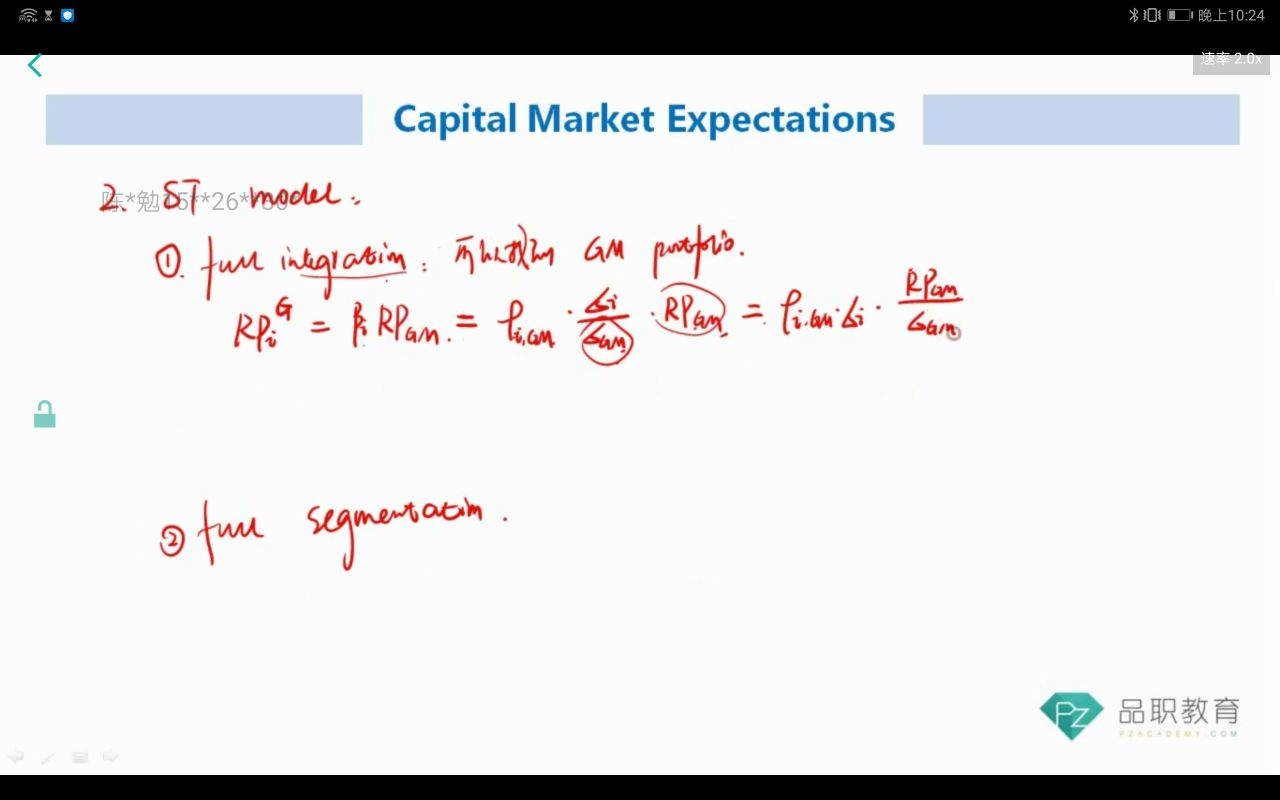 晚上10:24
速率 2.0x
Capital Market Expectations
陈*勉15**26*
2. ST model:
①. full integration: 所以投资 GM portfolio.
RPᵢᴳ = βᵢ RPGM. = ρi,GM · σi/σGM · RPGM = ρi,GM · σi · RPGM/σGM
② full segmentation.
PZ 品职教育
PZACADEMY.COM